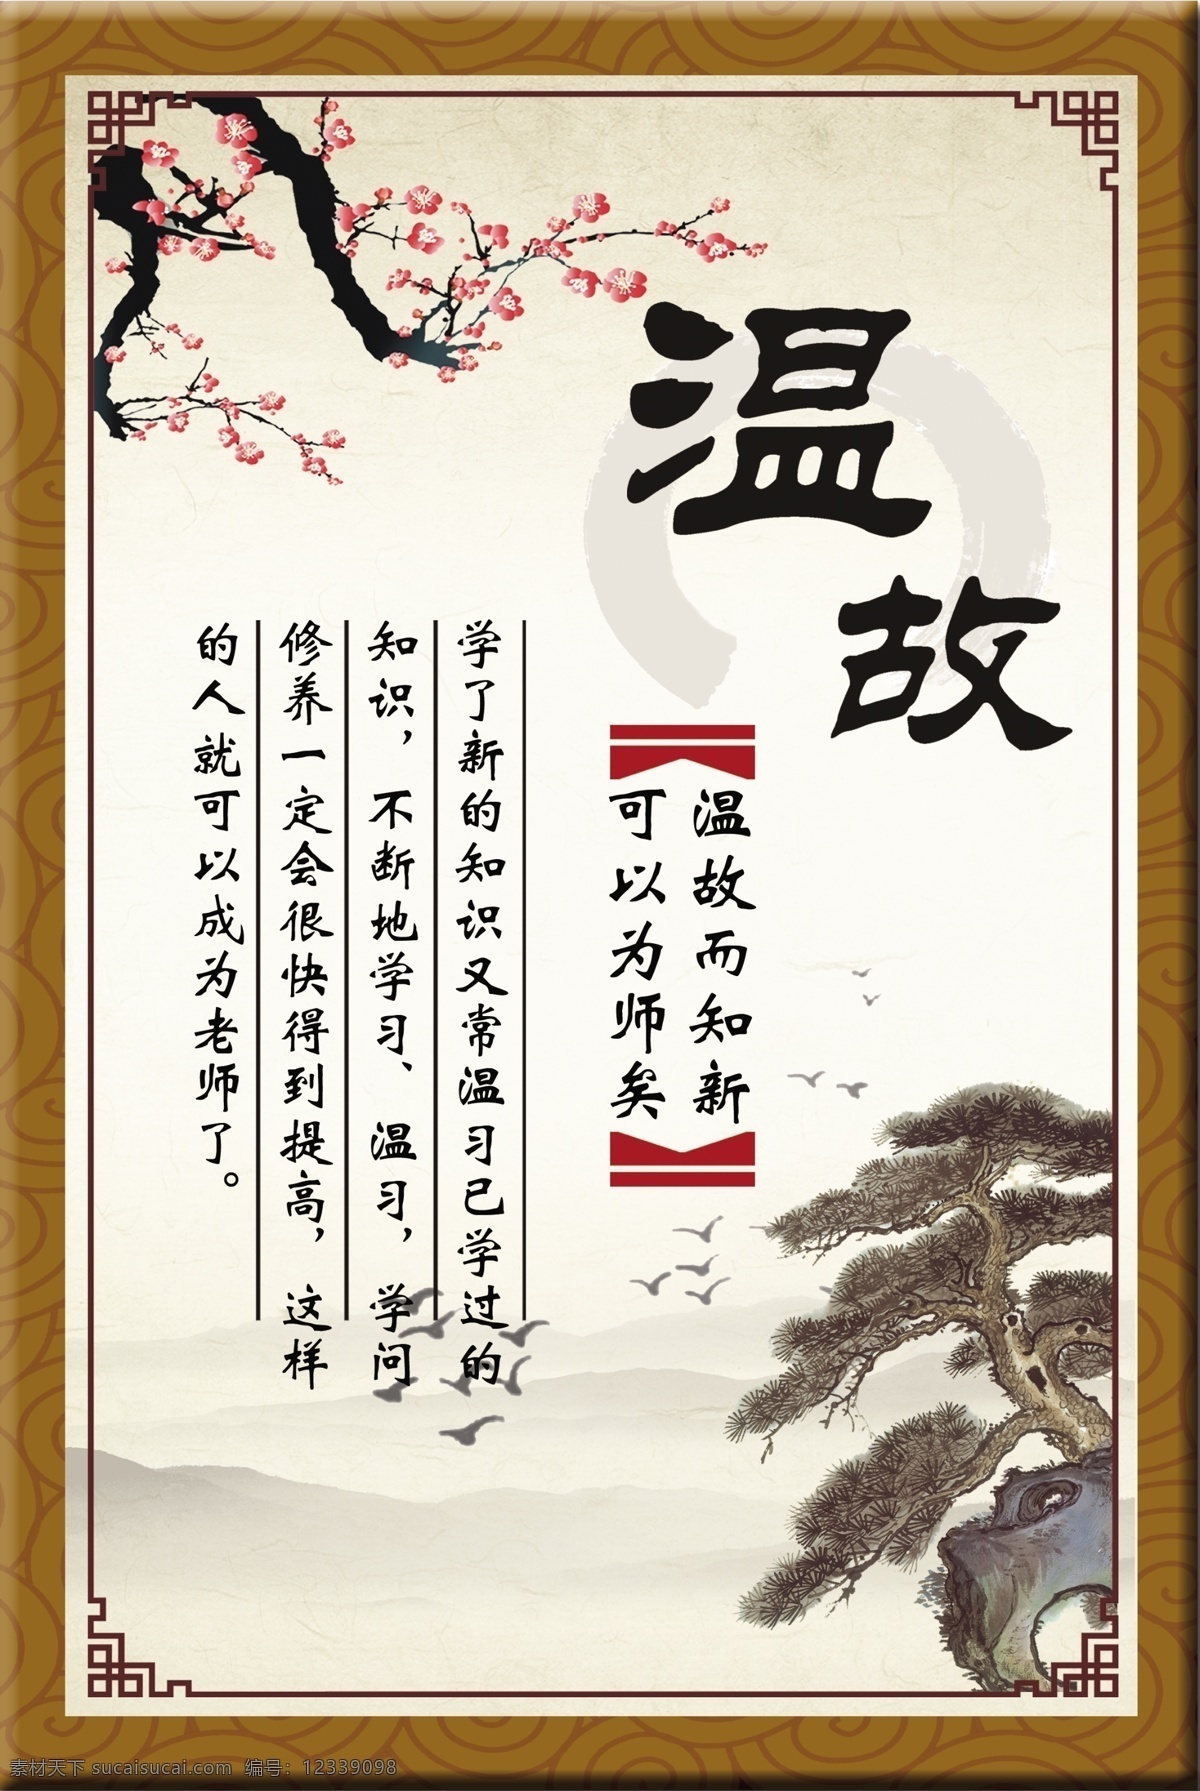 温
故
温故而知新
可以为师矣
学了新的知识又常温习已学过的
知识，不断地学习、温习，学问
修养一定会很快得到提高，这样
的人就可以成为老师了。
素材天下 sucaisucai.com 编号：12339098